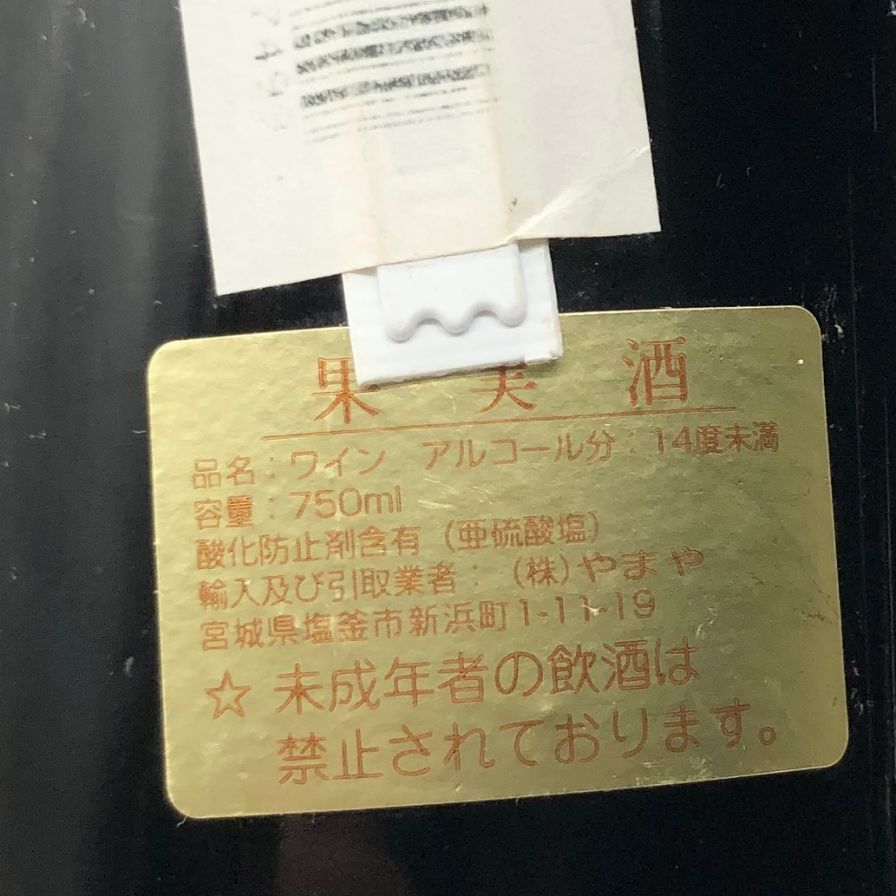 果実酒
品名：ワイン　アルコール分：14度未満
容量：750ml
酸化防止剤含有（亜硫酸塩）
輸入及び引取業者：（株）やまや
宮城県塩釜市新浜町1-11-19
☆ 未成年者の飲酒は
禁止されております。